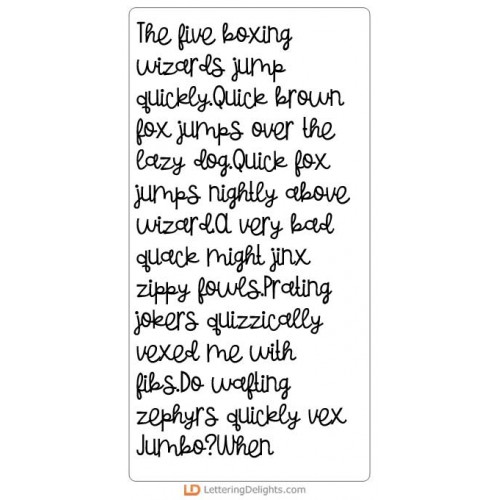 The five boxing
wizards jump
quickly.Quick brown
fox jumps over the
lazy dog.Quick fox
jumps nightly above
wizard.A very bad
quack might jinx
zippy fowls.Prating
jokers quizzically
vexed me with
fibs.Do wafting
zephyrs quickly vex
Jumbo?When
LD LetteringDelights.com